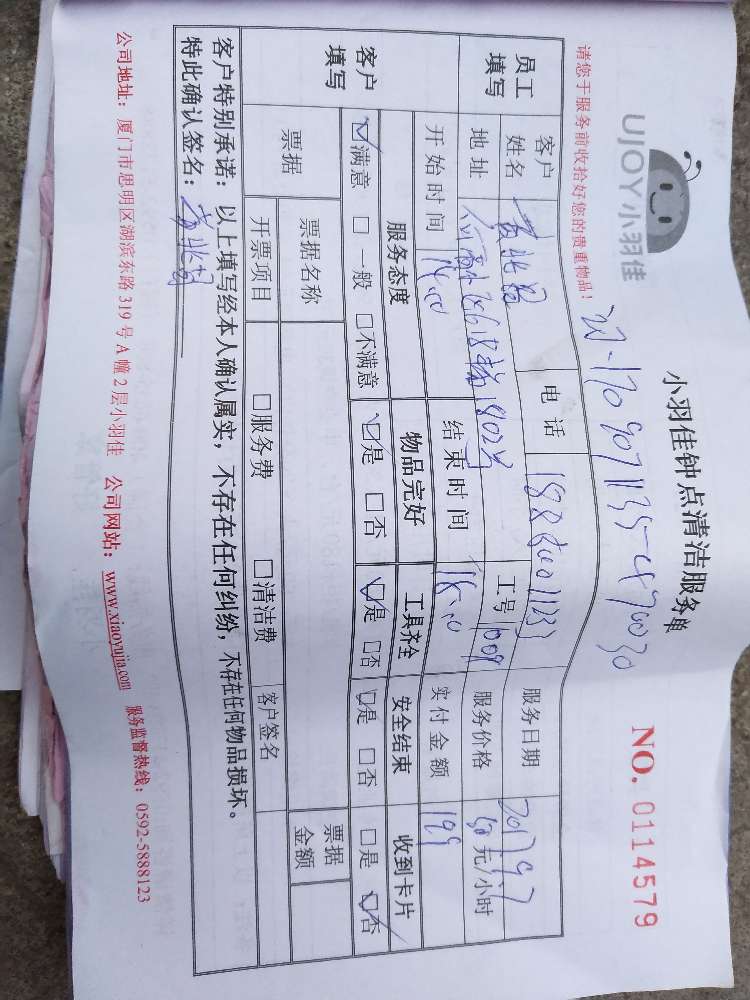 UJOY小羽佳
小羽佳钟点清洁服务单
NO. 0114579
请您于服务前收拾好您的贵重物品!
员工填写 客户姓名 电话 服务日期 2017.9.7
地址 工号 1008 服务价格 50元/小时
开始时间 14:00 结束时间 18:00 实付金额 199
客户填写 服务态度 物品完好 工具齐全 安全结束 收到卡片
☑满意 □一般 □不满意 ☑是 □否 ☑是 □否 ☑是 □否 □是 ☑否
票据 票据名称 票据金额
开票项目 □服务费 □清洁费 客户签名
客户特别承诺:以上填写经本人确认属实,不存在任何纠纷,不存在任何物品损坏。
特此确认签名:
公司地址:厦门市思明区湖滨东路319号A幢2层小羽佳 公司网站:www.xiaoyujia.com 服务监督热线:0592-5888123